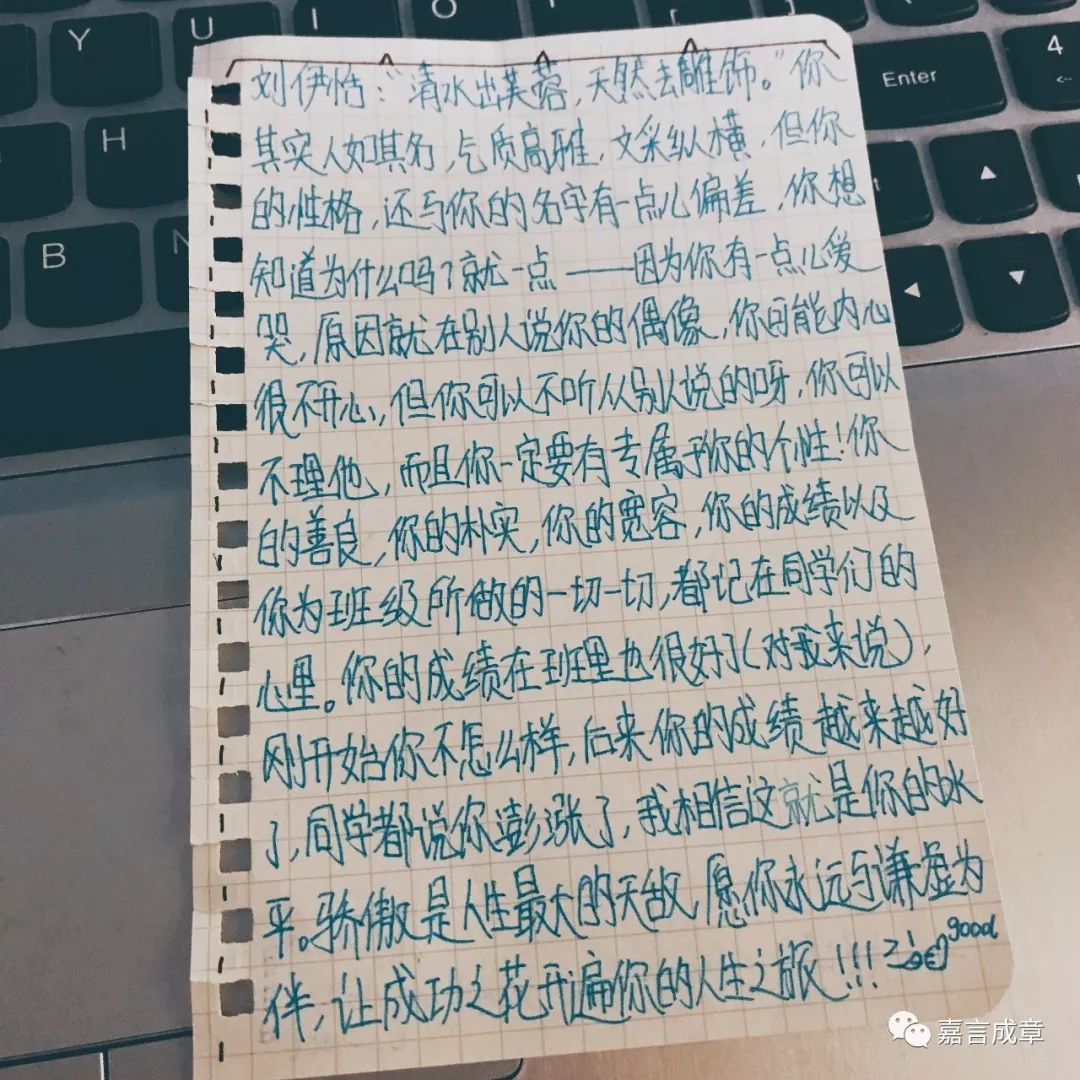 刘伊恬："清水出芙蓉，天然去雕饰。"你
其实人如其名，气质高雅，文采纵横，但你
的性格，还与你的名字有一点儿偏差，你想
知道为什么吗？就一点——因为你有一点儿爱
哭，原因就在别人说你的偶像，你可能内心
很不开心，但你可以不听从别人说的呀，你可以
不理他，而且你一定要有专属于你的个性！你
的善良，你的朴实，你的宽容，你的成绩以及
你为班级所做的一切一切，都记在同学们的
心里。你的成绩在班里也很好了（对我来说），
刚开始你不怎么样，后来你的成绩越来越好
了，同学都说你澎涨了，我相信这就是你的水
平。骄傲是人生最大的天敌，愿你永远与谦虚为
伴，让成功之花开遍你的人生之旅！！！
good
Y
U
I
O
H
B
N
Enter
4
嘉言成章